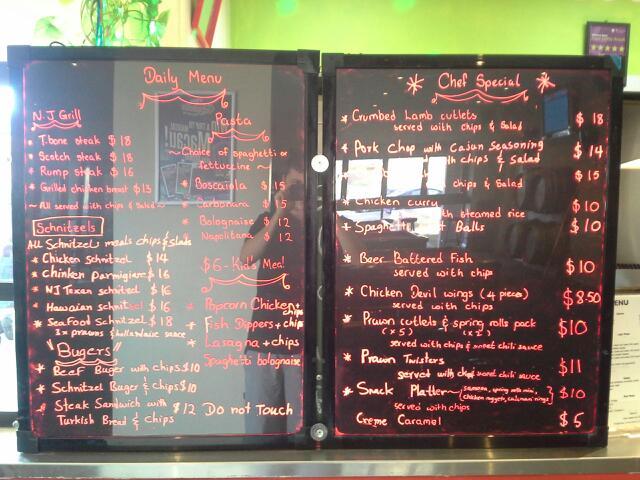 Daily Menu
N.J Grill
* T.bone steak $18
* Scotch steak $18
* Rump steak $16
* Grilled chicken breast $13
~ All served with chips & Salad ~
Schnitzels
All Schnitzel meals chips & slads
* Chicken Schnitzel $14
* Chinken parmigian $16
* NJ Texan schnitzel $16
* Hawaiian schnitzel $16
* Sea Food Schnitzel $18
3x prawns & hollandaise sauce
"Bugers"
* Beef Buger with chips $10
* Schnitzel Buger & chips $10
* Steak Sandwich with $12
Turkish Bread & chips
Pasta
~ Choice of spaghetti or
fettuccine ~
* Boscaiola $15
* Carbonara $15
* Bolognaise $12
* Napolitana $12
$6 - Kid's Meal
* Popcorn Chicken + chips
* Fish Dippers + chip
* Lasagna + chips
Spaghetti bolognaise
Do not Touch
* Chef Special *
* Crumbed Lamb cutlets $18
served with chips & Salad
* Pork Chop with Cajun Seasoning $14
with chips & Salad
$15
chips & Salad
* Chicken curry $10
with steamed rice
* Spaghetti Balls $10
* Beer Battered Fish $10
served with chips
* Chicken Devil wings (4 pieces) $8.50
served with chips
* Prawn cutlets & spring rolls pack $10
(x5) (x5)
served with chips & sweet chili sauce
* Prawn Twisters $11
servet with chips sweet chili sauce
* Snack Platter ~ $10
served with chips
Creme Caramel $5